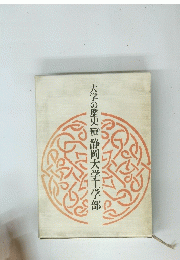 大学の歴史 静岡大学工学部